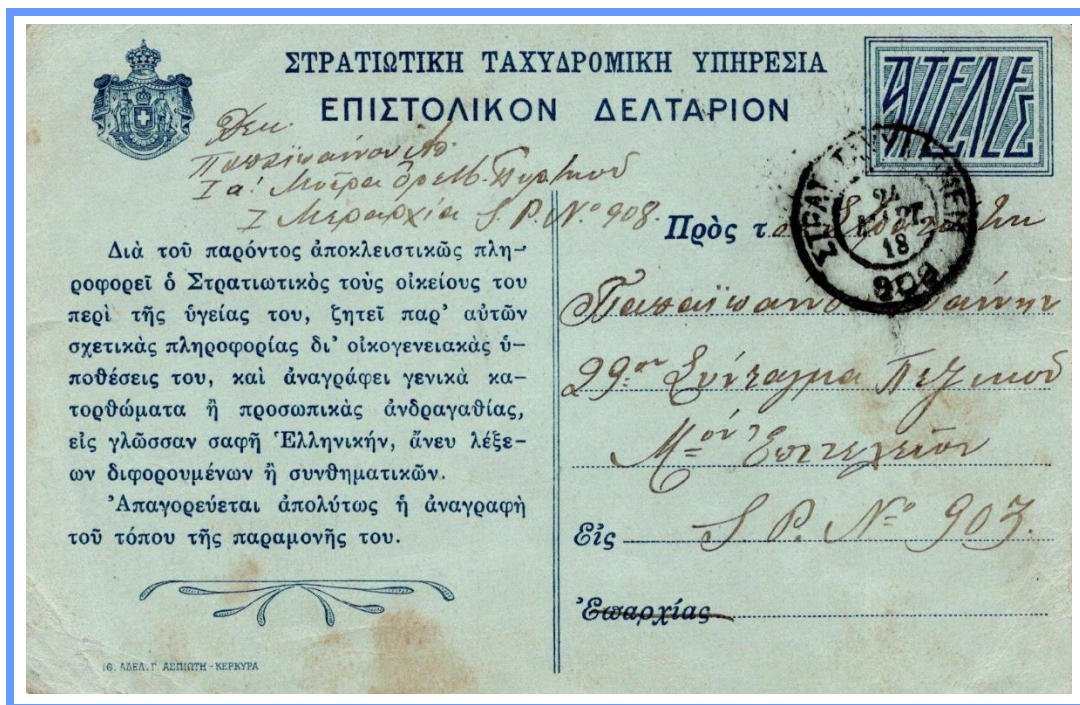 ΣΤΡΑΤΙΩΤΙΚΗ ΤΑΧΥΔΡΟΜΙΚΗ ΥΠΗΡΕΣΙΑ
ΕΠΙΣΤΟΛΙΚΟΝ ΔΕΛΤΑΡΙΟΝ
ΑΤΕΛΕΣ
Δεκ.
Παπαϊωάννου
Ια! Μοίρα Ὀρειβ. Πυρ/κοῦ
Ι Μεραρχία S. P. Nº 908.
24
ΜΑΡΤ.
18
908
Διὰ τοῦ παρόντος ἀποκλειστικῶς πλη-
ροφορεῖ ὁ Στρατιωτικὸς τοὺς οἰκείους του
περὶ τῆς ὑγείας του, ζητεῖ παρ' αὐτῶν
σχετικὰς πληροφορίας δι' οἰκογενειακὰς ὑ-
ποθέσεις του, καὶ ἀναγράφει γενικὰ κα-
τορθώματα ἢ προσωπικὰς ἀνδραγαθίας,
εἰς γλῶσσαν σαφῆ Ἑλληνικήν, ἄνευ λέξε-
ων διφορουμένων ἢ συνθηματικῶν.
Ἀπαγορεύεται ἀπολύτως ἡ ἀναγραφὴ
τοῦ τόπου τῆς παραμονῆς του.
ΑΔΕΛ. Γ. ΑΣΠΙΩΤΗ - ΚΕΡΚΥΡΑ
Πρὸς τ
29ον Σύνταγμα Πεζικοῦ
Ἐπιτελεῖον
Εἰς S. P. Nº 903.
Ἐπαρχίας